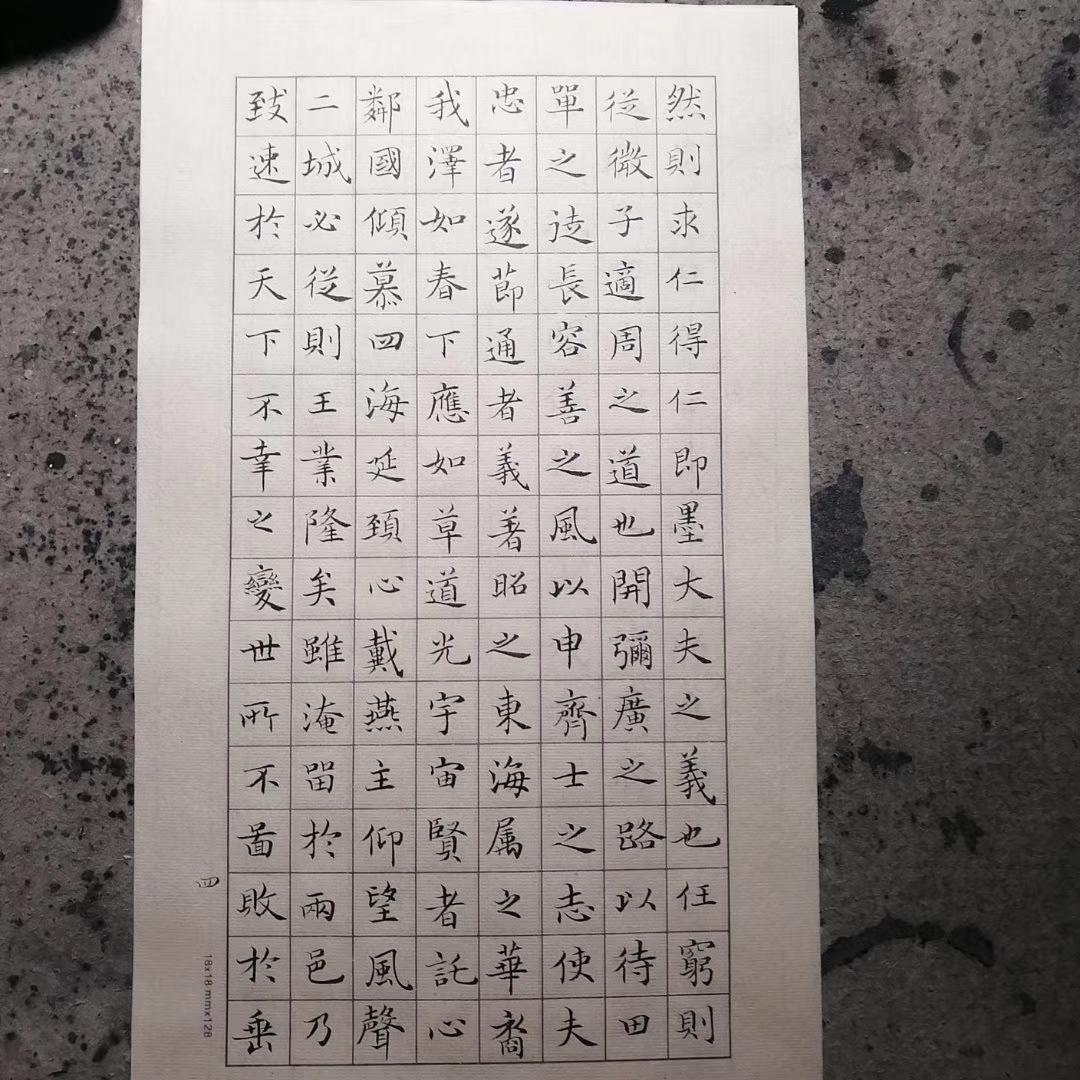 然則求仁得仁即墨大夫之義也任窮則
從微子適周之道也開彌廣之路以待田
單之徒長容善之風以申齊士之志使夫
忠者遂節通者義著昭之東海属之華裔
我澤如春下應如草道光宇宙賢者託心
鄰國傾慕四海延頚心戴燕主仰望風聲
二城必從則王業隆矣雖淹留於兩邑乃
致速於天下不幸之變世所不啚敗於垂
四
18x18 mmx128